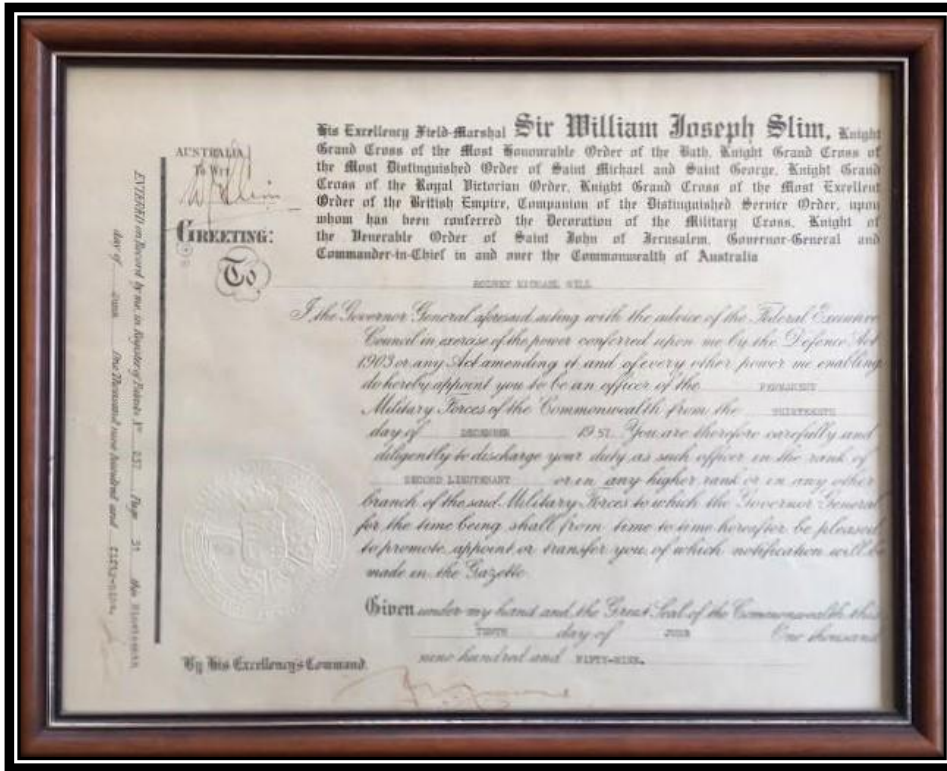 His Excellency Field-Marshal Sir William Joseph Slim, Knight
Grand Cross of the Most Honourable Order of the Bath, Knight Grand Cross of
the Most Distinguished Order of Saint Michael and Saint George, Knight Grand
Cross of the Royal Victorian Order, Knight Grand Cross of the Most Excellent
Order of the British Empire, Companion of the Distinguished Service Order, upon
whom has been conferred the Decoration of the Military Cross, Knight of
the Venerable Order of Saint John of Jerusalem, Governor-General and
Commander-in-Chief in and over the Commonwealth of Australia
AUSTRALIA
To Wit
W J Slim
GREETING:
To
RODNEY MICHAEL
I the Governor General aforesaid, acting with the advice of the Federal Executive
Council in exercise of the power conferred upon me by the Defence Act
1903 or any Act amending it and of every other power me enabling
do hereby appoint you to be an officer of the PERMANENT
Military Forces of the Commonwealth from the
day of DECEMBER 1957. You are therefore carefully and
diligently to discharge your duty as such officer in the rank of
SECOND LIEUTENANT or in any higher rank or in any other
branch of the said Military Forces to which the Governor General
for the time being shall from time to time hereafter be pleased
to promote, appoint or transfer you, of which notification will be
made in the Gazette.
Given under my hand and the Great Seal of the Commonwealth this
TENTH day of JUNE One thousand
nine hundred and FIFTY-NINE.
By His Excellency's Command.
ENTERED on Record by me, in Register of Patents No 237 Page 51 this
day of June One Thousand nine hundred and FIFTY-NINE.